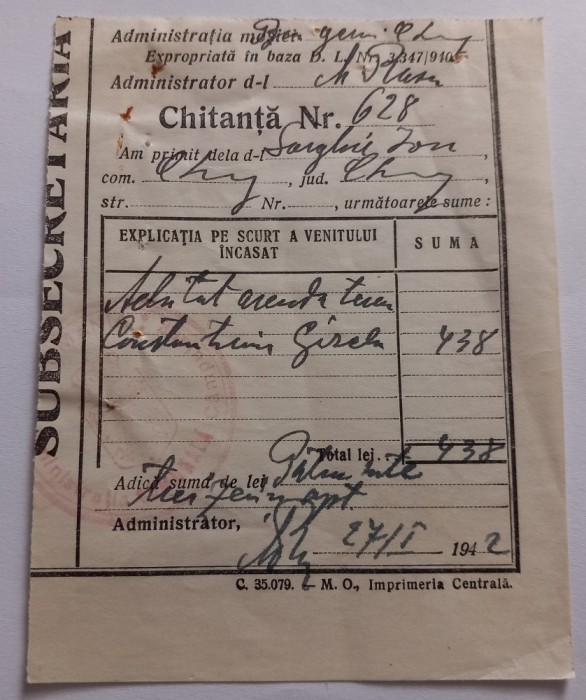 SUBSECRETARIA
Administrația moșiei
Expropriată în baza D. L. Nr. 3.347/940
Administrator d-l M Rusu
Chitanță Nr. 628
Am primit dela d-l Ion,
com., jud.,
str. Nr., următoarele sume:
EXPLICAȚIA PE SCURT A VENITULUI ÎNCASAT
SUMA
Achitat arenda teren
Constantiniu Gizela 438
Total lei. 438
Adică suma de lei Patru sute
trei zeci și opt
Administrator,
27/I 1942
C. 35.079. — M. O., Imprimeria Centrală.